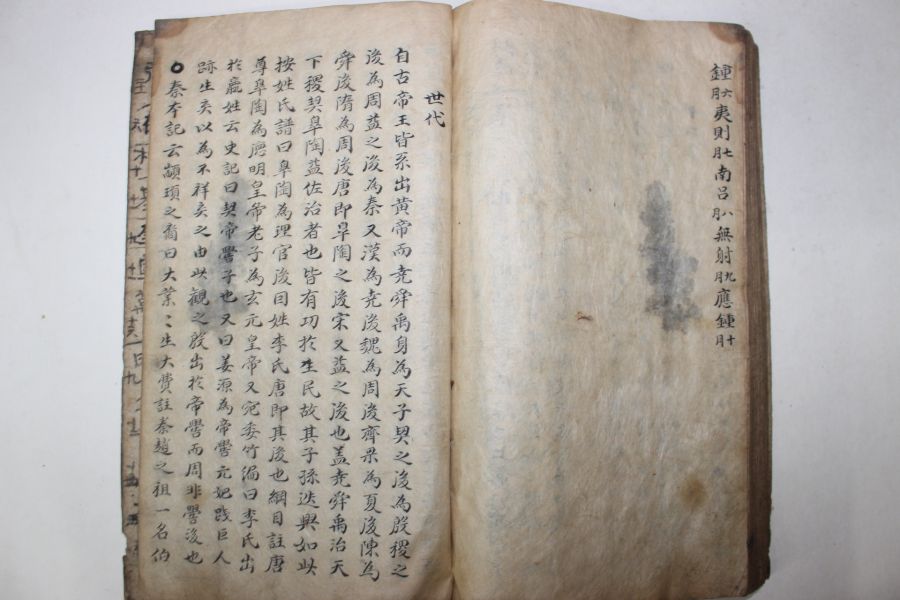 鍾六月夷則七月南呂八月無射九月應鍾十月
世代
自古帝王皆系出黃帝而堯舜禹身為天子契之後為殷稷之
後為周益之後為秦又漢為堯後魏為周後齊梁為夏後陳為
舜後隋為周後唐即皐陶之後宋又益之後也盖堯舜禹治天
下稷契皐陶益佐治者也皆有功於生民故其子孫迭興如此
按姓氏譜曰皐陶為理官後因姓李氏唐即其後也綱目註唐
尊皐陶為德明皇帝老子為玄元皇帝又宛委竹漏曰李氏出
於嬴姓云史記曰契帝嚳子也又曰姜源為帝嚳元妃踐巨人
跡生矣以為不祥矣之由此觀之殷出於帝嚳而周非嚳後也
秦本記云顓頊之裔曰大業〻生大費註秦趙之祖一名伯